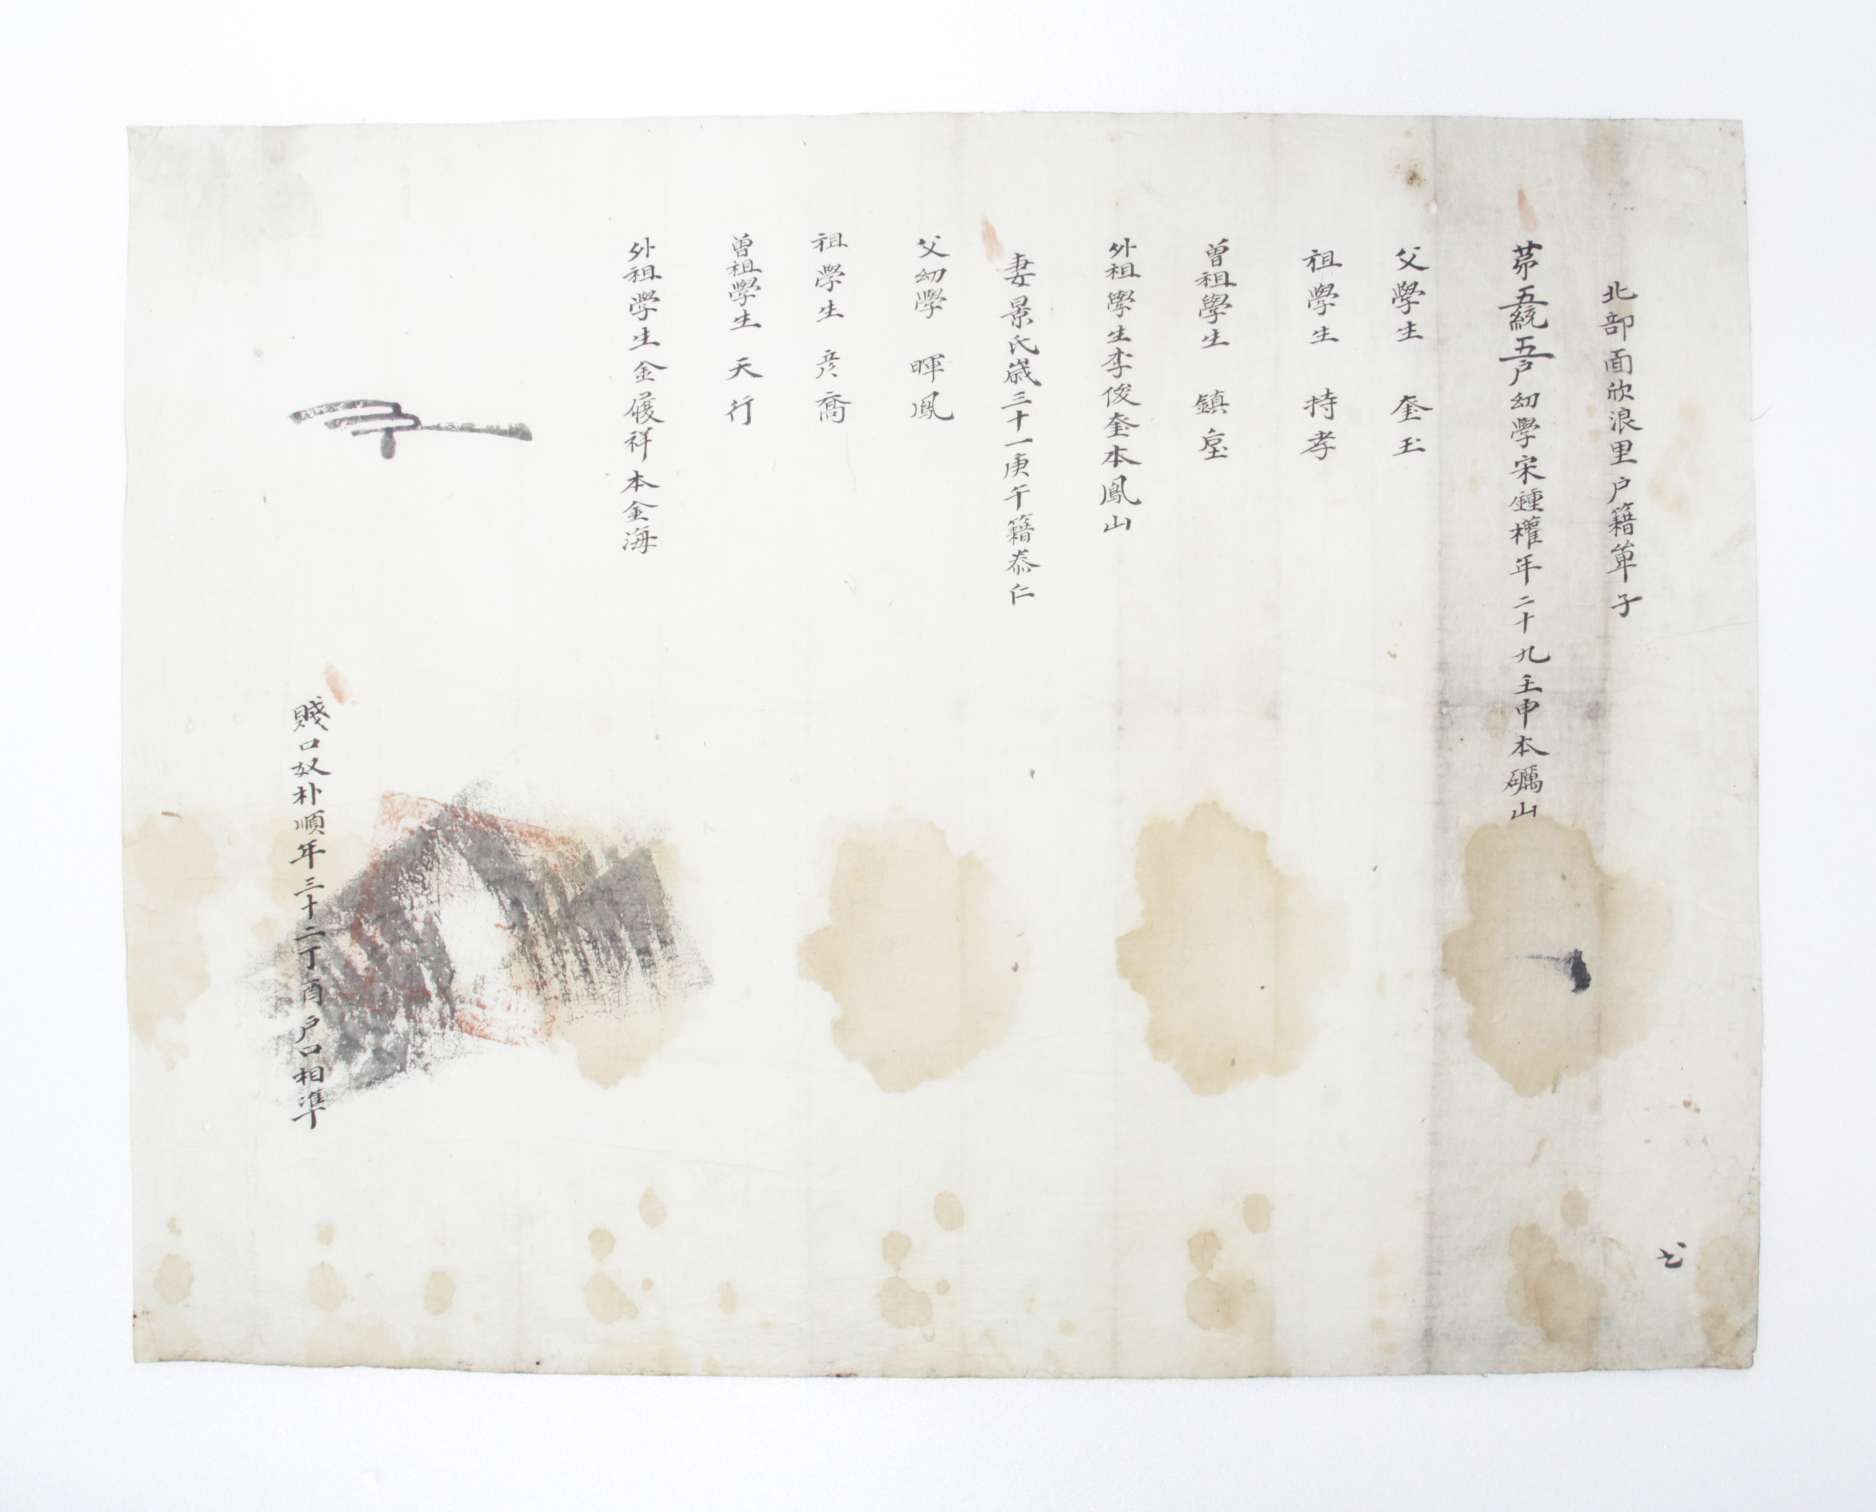 北部面欣浪里户籍單子
苐五統五户幼學宋鍾權年二十九壬申本礪山
父學生 奎玉
祖學生 持孝
曾祖學生 鎮垕
外祖學生李俊奎本鳳山
妻景氏歲三十一庚午籍泰仁
父幼學 暉鳳
祖學生 彦喬
曾祖學生 天行
外祖學生金履祥本金海
賤口奴朴順年三十二丁酉戶口相準